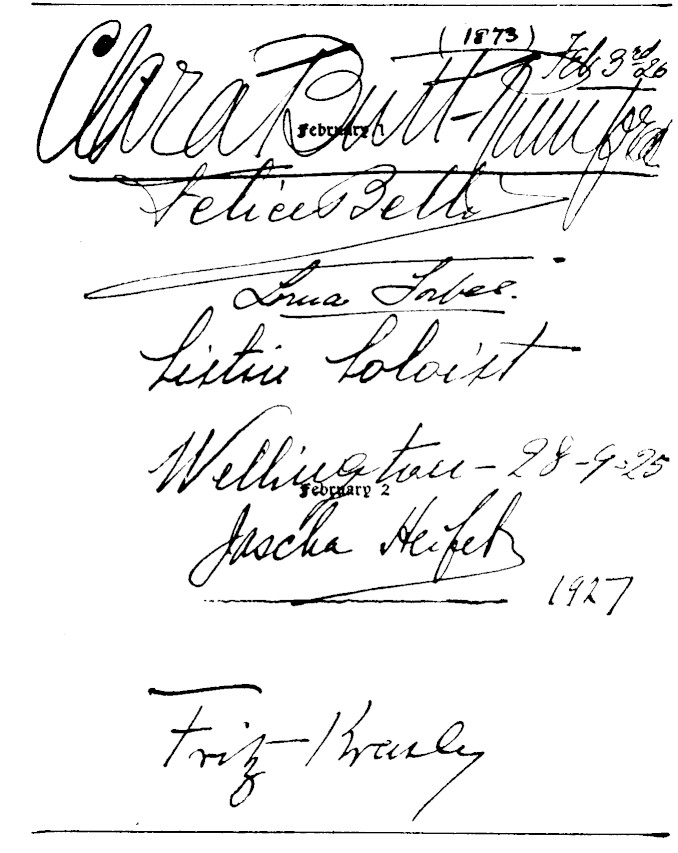 (1873)
Feb 3rd 26
Clara Butt-Rumford
February 1
Felice Belli
Lorna Forbes.
Soloist
Wellington – 28-9-25
February 2
Jascha Heifetz
1927
Fritz Kreisler